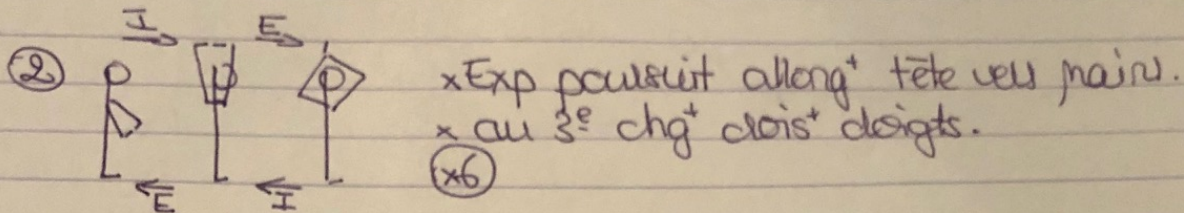 I E
② × Exp poursuit allong⁺ tête vers mains.
× au 3e chg⁺ crois⁺ doigts.
E I
×6